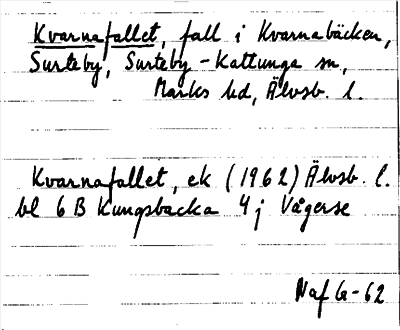 Kvarnafallet, fall i Kvarnabäcken,
Surteby, Surteby-Kattunga sn,
Marks hd, Älvsb. l.
Kvarnafallet, ek (1962) Älvsb. l.
bl 6 B Kungsbacka 4j Vågerse
Naf G-62